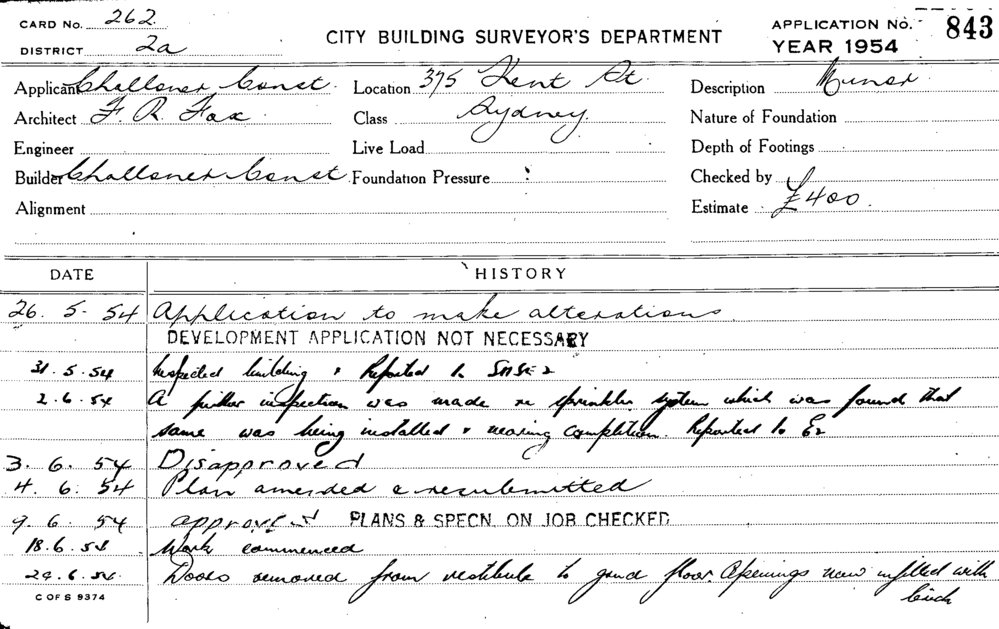 CARD No. 262
DISTRICT 2a
CITY BUILDING SURVEYOR'S DEPARTMENT
APPLICATION No. 843
YEAR 1954
Applicant Challoner Const. Location 375 Kent St. Description Minor
Architect F. R. Fox Class Sydney Nature of Foundation
Engineer Live Load Depth of Footings
Builder Challoner Const. Foundation Pressure Checked by
Alignment Estimate £400.
DATE HISTORY
26. 5. 54 Application to make alterations
DEVELOPMENT APPLICATION NOT NECESSARY
31.5.54 Inspected building & Reported to
2.6.54 A further inspection was made re sprinkler system which was found that
same was being installed & nearing completion. Reported to
3. 6. 54 Disapproved
4. 6. 54 Plan amended & resubmitted
9. 6. 54 approved PLANS & SPECN. ON JOB CHECKED
18.6.54 Work commenced
29.6.54 Doors removed from vestibule to grnd floor. Openings now infilled with
brick
C OF S 9374